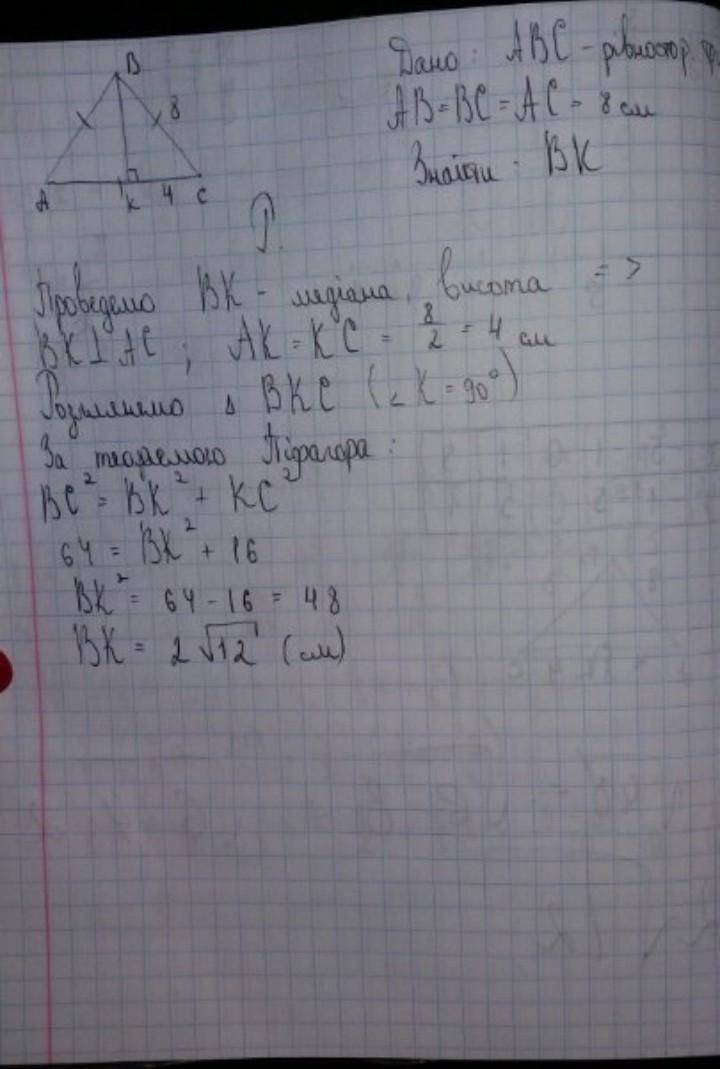 B
8
A
K 4 C
Дано: ABC - рівностор.
AB = BC = AC = 8 см
Знайти: BK
Р.
Проведемо BK - медіана, висота =>
BK⊥AC; AK = KC = 8/2 = 4 см
Розглянемо Δ BKC (∠K = 90°)
За теоремою Піфагора:
BC² = BK² + KC²
64 = BK² + 16
BK² = 64 - 16 = 48
BK = 2√12 (см)